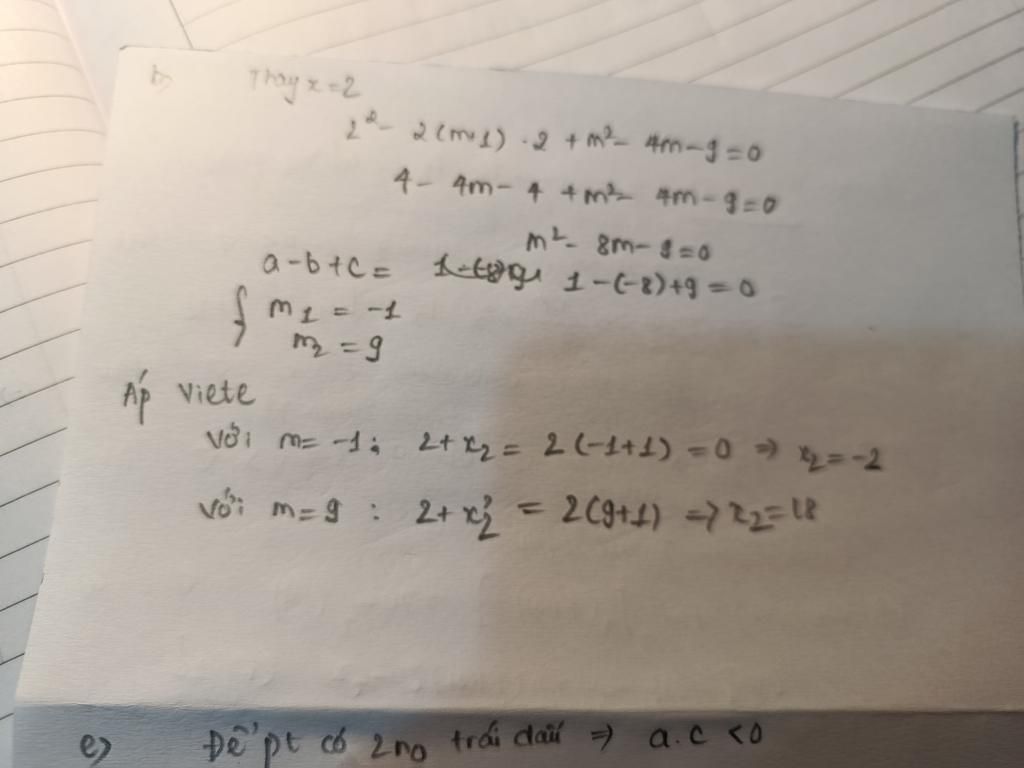 b) Thay x=2
2² - 2(m+1) . 2 + m² - 4m - 9 = 0
4 - 4m - 4 + m² - 4m - 9 = 0
m² - 8m - 9 = 0
a - b + c = 1 - (-8) + 9 = 0
{ m1 = -1
m2 = 9
Áp Viete
Với m = -1 : 2 + x2 = 2(-1+1) = 0 => x2 = -2
Với m = 9 : 2 + x2 = 2(9+1) => x2 = 18
e) Để pt có 2 no trái dấu => a.c < 0